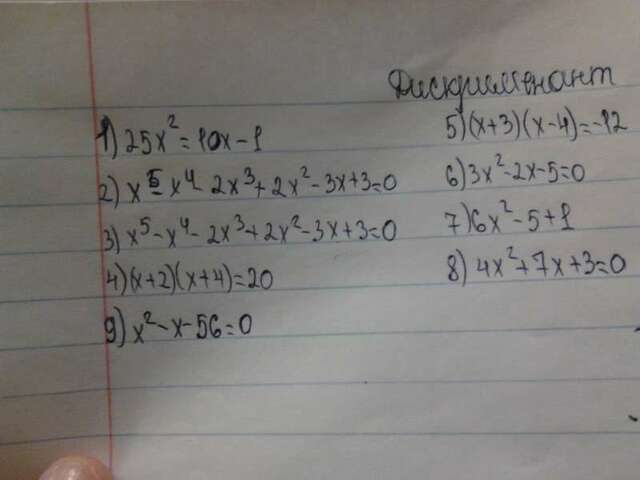 Дискрименант
1) 25x² = 10x - 1
2) x⁵ - x⁴ - 2x³ + 2x² - 3x + 3 = 0
3) x⁵ - x⁴ - 2x³ + 2x² - 3x + 3 = 0
4) (x+2)(x+4) = 20
9) x² - x - 56 = 0
5) (x+3)(x-4) = -12
6) 3x² - 2x - 5 = 0
7) 6x² - 5 + 1
8) 4x² + 7x + 3 = 0